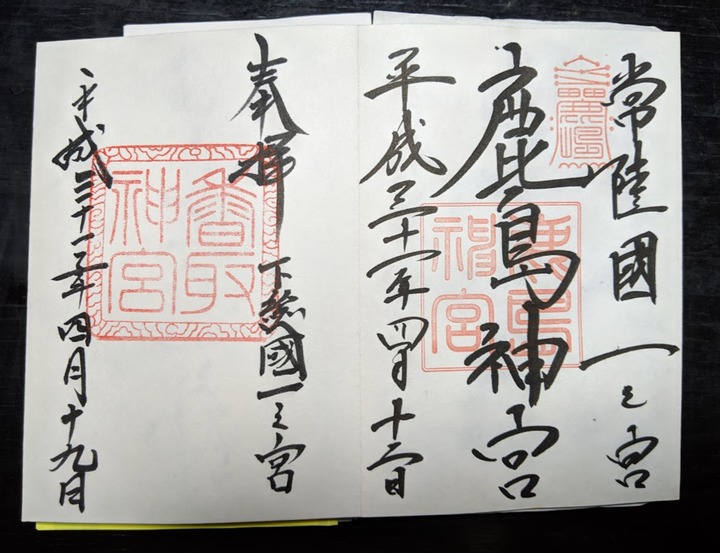 常陸國一之宮
鹿島神宮
鹿島神宮
平成三十一年四月十二日
奉拝
下総國一之宮
香取神宮
平成三十一年四月十九日